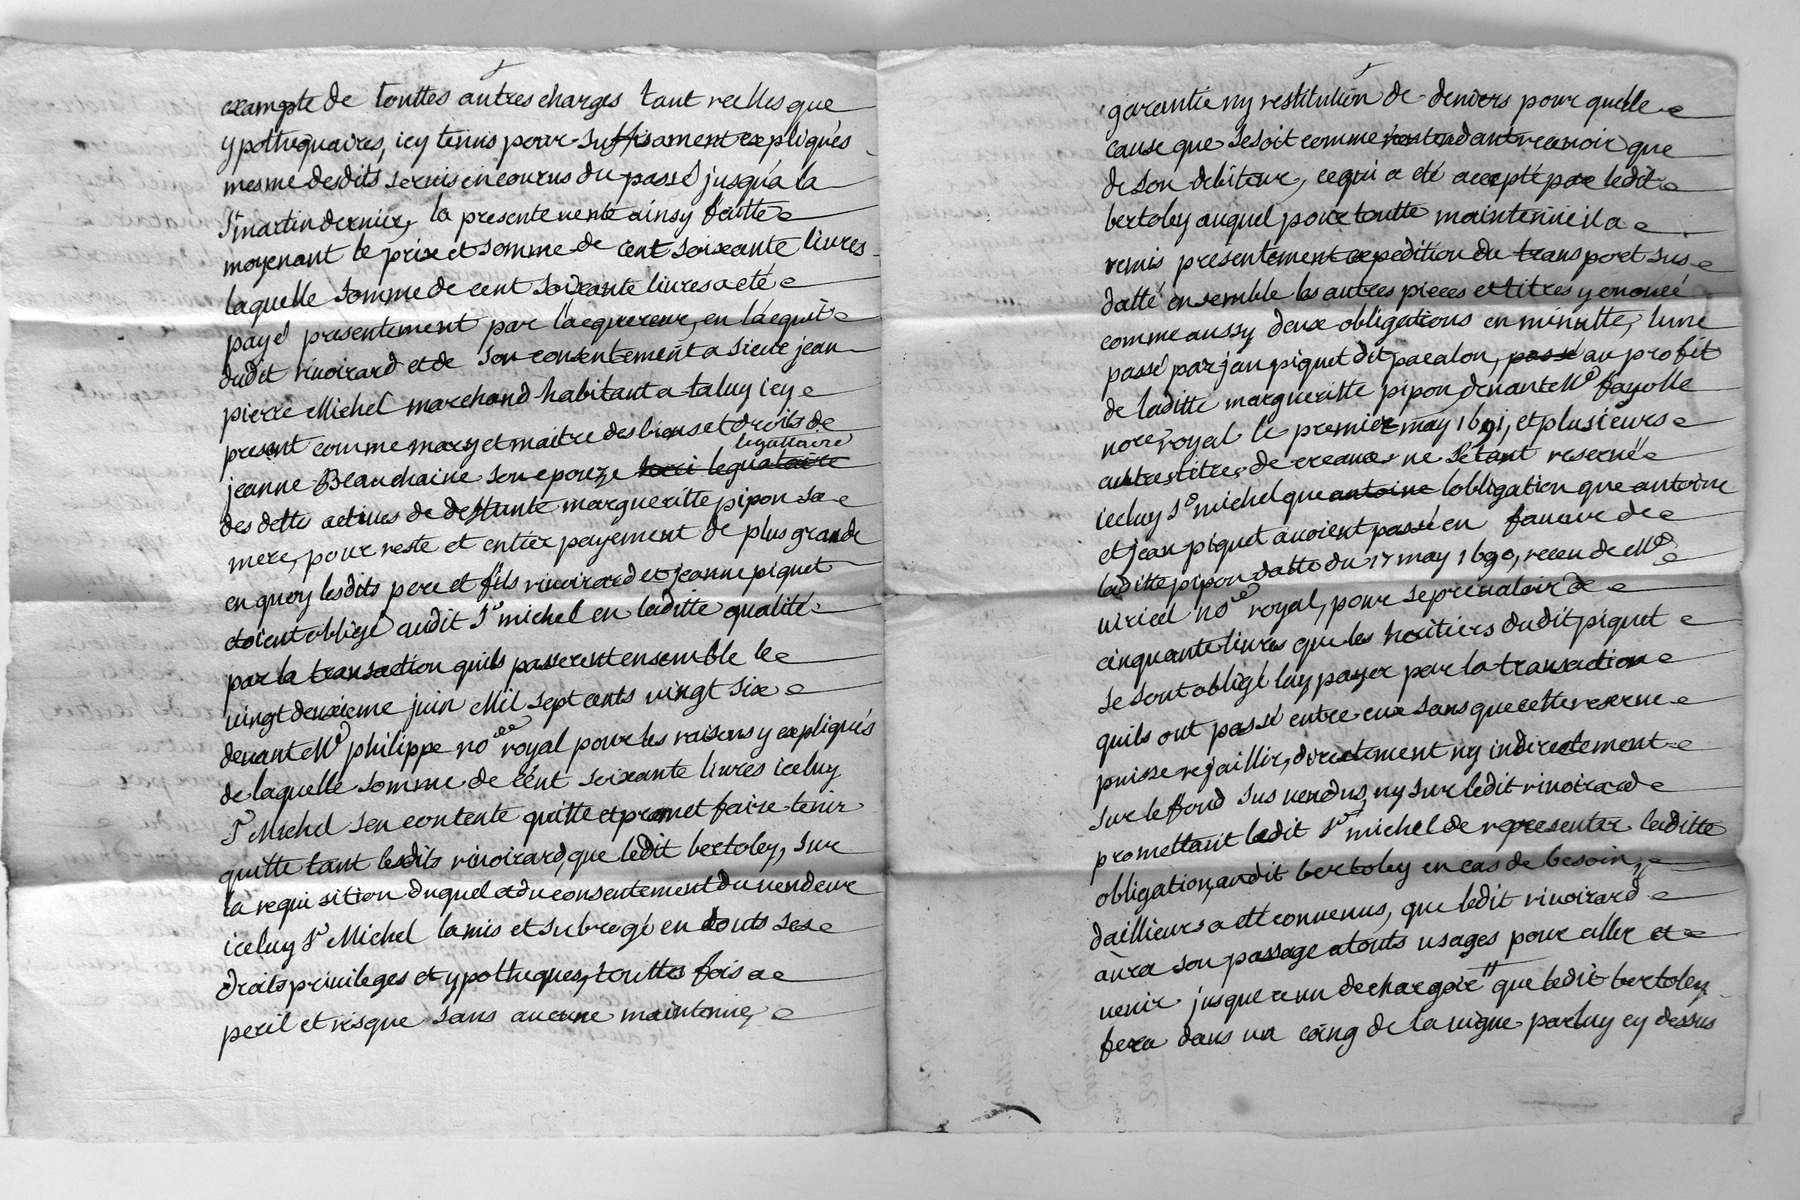 exampte de touttes autres charges tant reelles que
ypothequaires, icy tenus pour suffisament expliqués
mesme desdits servis encourus du passé jusqu'a la
St martin dernier, la presente vente ainsy faitte
moyenant le prix et somme de cent soixante livres
laquelle somme de cent soixante livres a eté
payé presentement par l'acquereur, en l'acquit
dudit rivoirard et de son consentement a sieur jean
pierre Michel marchand habitant a taluy icy
present comme mary et maitre des biens et droits de
legattaire
jeanne Beauchaine son epouze heri legnataire
des dettes actives de deffunte margueritte pipon sa
mere, pour reste et entier payement de plus grande
en quoy lesdits pere et fils rivoirard et jeanne piquet
etoient obligé audit Sr michel en laditte qualité
par la transaction quils passerent ensemble le
vingt deuxieme juin Mil sept cents vingt six
devant Me philippe nore royal pour les raisons y expliqués
de laquelle somme de cent soixante livres iceluy
Sr Michel sen contente quitte et promet faire tenir
quitte tant lesdits rivoirard, que ledit bertoley, sur
la requisition duquel et du consentement du vendeur
iceluy Sr Michel la mis et subrogé en touts ses
droits privileges et ypotheques, touttes fois a
peril et risque sans aucune maintenue,
garantie ny restitution de deniers pour quelle
cause que se soit comme recevoir que
de son debiteur, ce qui a eté accepté par ledit
bertoley auquel pour toutte maintenue il a
remis presentement expedition du transport sus
datté ensemble les autres pieces et titres y enoncé
comme aussy deux obligations en minutte, l'une
passé par jean piquet dit pacalon, passé au profit
de laditte margueritte pipon devant Me fayolle
nore royal le premier may 1691, et plusieurs
autres titres de creance ne s'etant reservé
iceluy Sr michel que antoine lobligation que antoine
et jean piquet avoient passé en faveur de
laditte pipon datté du 17 may 1690, receu de Me
uiricel nore royal, pour se prevaloir de
cinquante livres que les heritiers dudit piquet
se sont obligé luy payer par la transaction
quils ont passé entre eux sans que cette reserve
puisse rejaillir, directement ny indirectement
sur le fond sus vendus, ny sur ledit rivoirard
promettant ledit Sr michel de representer laditte
obligation, audit bertoley en cas de besoin,
dailleurs a eté convenus, que ledit rivoirard
aura son passage a touts usages pour aller et
venir jusque a un dechargoir que ledit bertoley
fera dans un coing de la vigne par luy cy dessus